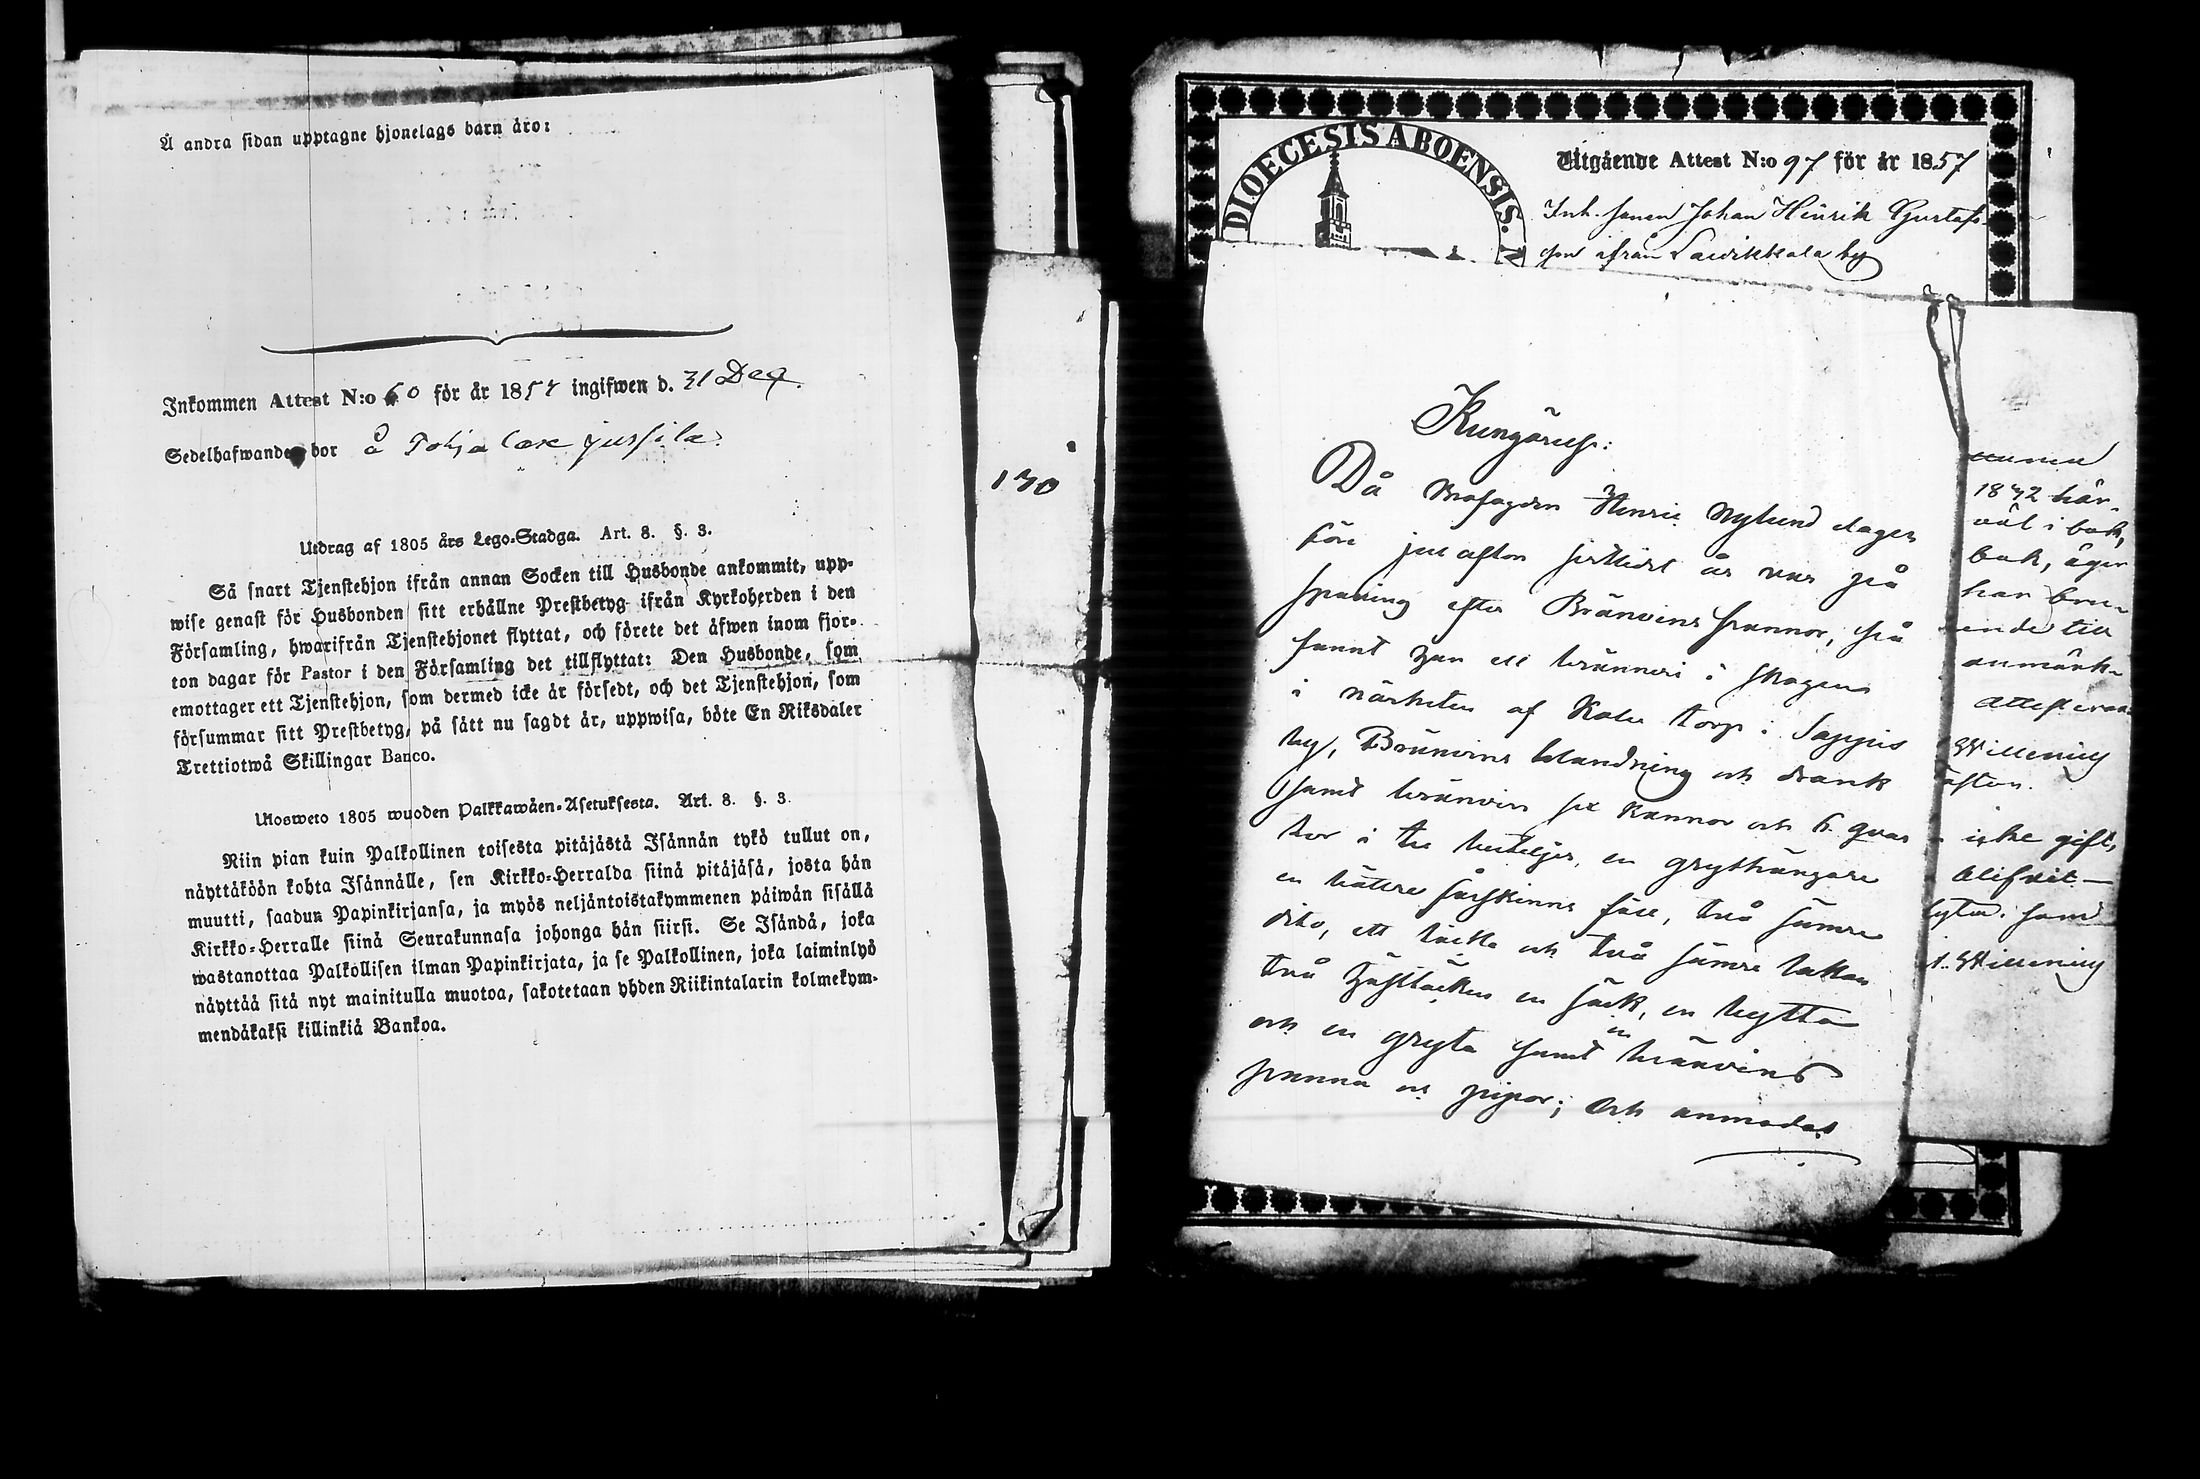 Å andra sidan upptagne hjonelags barn äro:
Inkommen Attest N:o 60 för år 1857 ingifwen d. 31 Dec.
Sedelhafwanden bor å Pohja
Utdrag af 1805 års Lego-Stadga. Art. 8. §. 3.
Så snart Tjenstehjon ifrån annan Socken till Husbonde ankommit, upp-
wise genast för Husbonden sitt erhållne Prestbetyg ifrån Kyrkoherden i den
Församling, hwarifrån Tjenstehjonet flyttat, och förete det äfwen inom fjor-
ton dagar för Pastor i den Församling det tillflyttat: Den Husbonde, som
emottager ett Tjenstehjon, som dermed icke är försedt, och det Tjenstehjon, som
försummar sitt Prestbetyg, på sätt nu sagdt är, uppwisa, böte En Riksdaler
Trettiotwå Skillingar Banco.
Ulosweto 1805 wuoden Palkkawäen-Asetuksesta. Art. 8. §. 3.
Niin pian kuin Palkollinen toisesta pitäjästä Isännän tykö tullut on,
näyttäköön kohta Isännälle, sen Kirkko-Herralda siinä pitäjäsä, josta hän
muutti, saadun Papinkirjansa, ja myös neljäntoistakymmenen päiwän sisällä
Kirkko-Herralle siinä Seurakunnasa johonga hän siirsi. Se Isändä, joka
wastanottaa Palkollisen ilman Papinkirjata, ja se Palkollinen, joka laiminlyö
näyttää sitä nyt mainitulla muotoa, sakotetaan yhden Riikintalarin kolmekym-
mendäkaksi killinkiä Bankoa.
130
DIOECESIS ABOENSIS.
Utgående Attest N:o 97 för år 1857
Inh. sonen Johan Hinrik Gustafs-
son ifrån Lawikkala by
Kungörelse:
Då Henric Nylund dagen
före jul afton sistlidet år var på
spaning efter Bränvins pannor, så
fannt han ett bränneri i skogen
i närheten af torp i
by, Brännvins blandning och drank
samt bränvin sex kannor och 6 qvar
ter i tre buteljer, en grythängare
en bättre fårskinns fäll, två sämre
dito, ett täcke och två sämre
två hästtäcken en säck, en bytta
och en gryta samt en bränvins
panna och pipor; och anmodas
1842 här-
väl i bok,
bak, äger
har
ende till
anmärk-
attesteras
afton.
icke gift,
samt